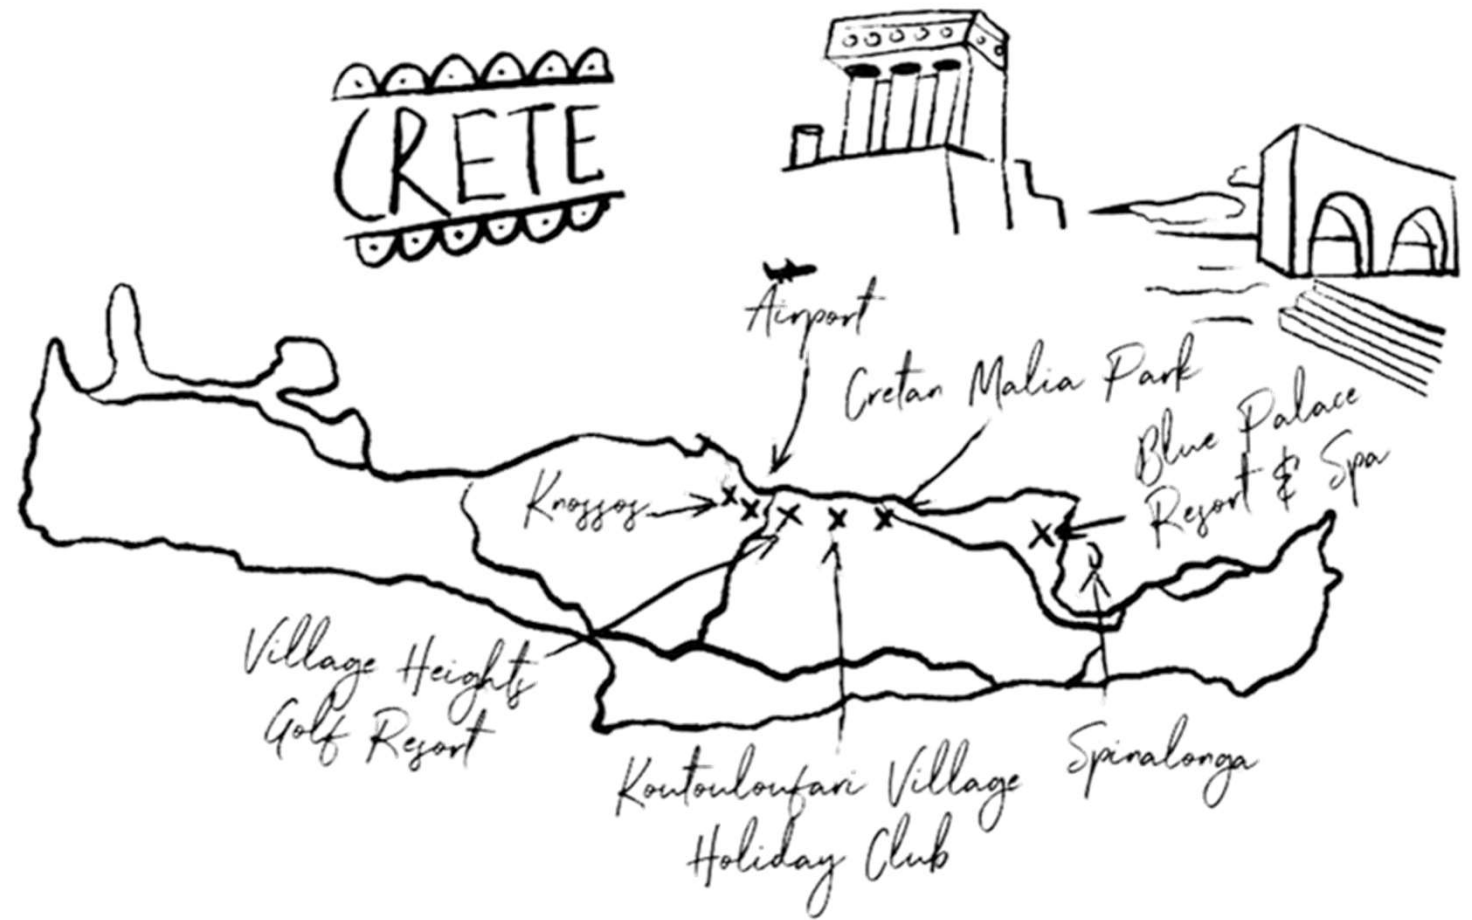 CRETE
Airport
Cretan Malia Park
Blue Palace
Resort & Spa
Knossos
Village Heights
Golf Resort
Koutouloufari Village
Holiday Club
Spinalonga